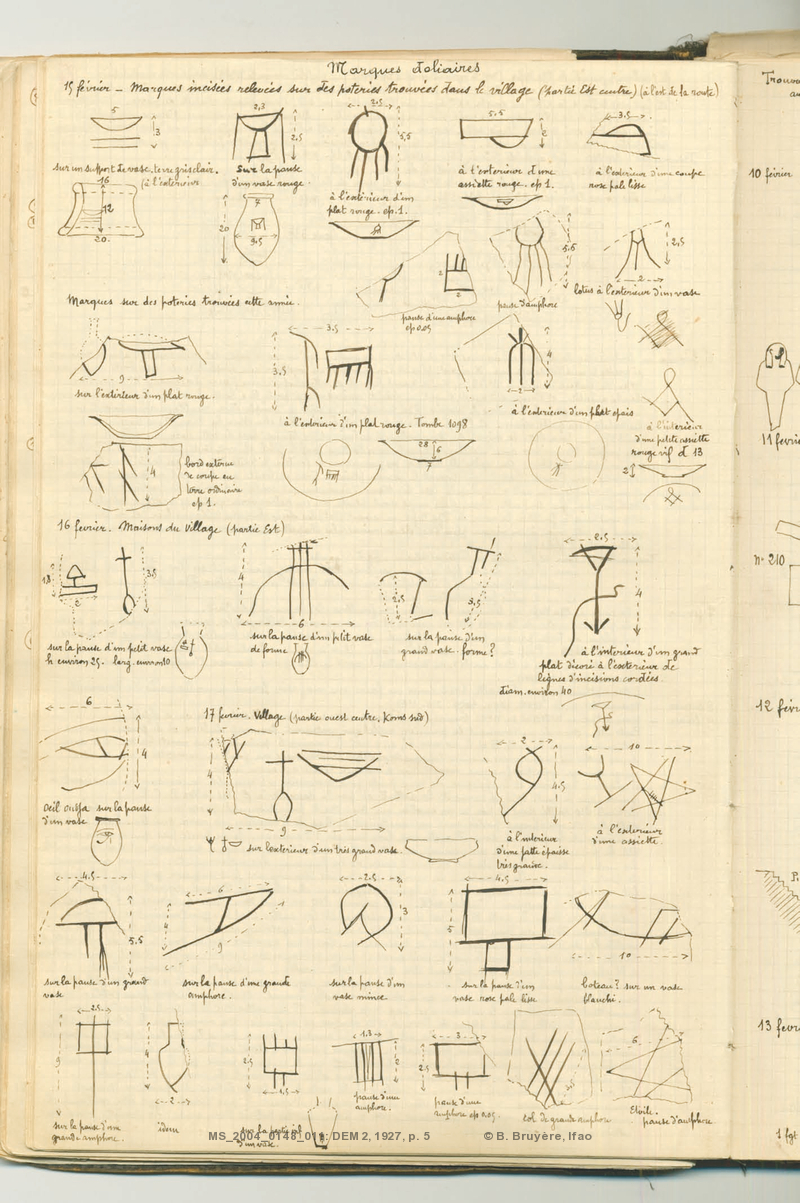 Marques doliaires
15 février - Marques incisées relevées sur des poteries trouvées dans le village (partie Est centre) (à l'est de la route)
5
3
sur un support de vase. terre gris clair.
(à l'extérieur
16
12
20.
2,3
2,5
sur la panse
d'un vase rouge.
7
20
9,5
2,5
5,5
à l'extérieur d'un
plat rouge. ep. 1.
5,5
2
à l'extérieur d'une
assiette rouge. ep 1.
3,5
à l'extérieur d'une coupe
rose pale lisse
2
2
panse d'une amphore
ep 0,05
5,5
panse d'amphore
2,5
2
lotus à l'extérieur d'un vase
Marques sur des poteries trouvées cette année.
9
sur l'extérieur d'un plat rouge.
3,5
3,5
à l'extérieur d'un plat rouge. Tombe 1098
28
6
7
4
2
à l'extérieur d'un plat épais
à l'intérieur
d'une petite assiette
rouge vif d 13
2
4
bord extérieur
de coupe en
terre ordinaire
ep 1.
16 février. Maisons du Village (partie Est)
1,8
2
3,5
sur la panse d'un petit vase
h environ 25. larg. environ 10
4
6
sur la panse d'un petit vase
de forme
2,5
3,5
sur la panse d'un
grand vase. forme?
2,5
4
à l'intérieur d'un grand
plat décoré à l'extérieur de
lignes d'incisions cordées.
diam. environ 40
6
4
oeil oudja sur la panse
d'un vase
17 février. Village (partie ouest centre, Koms sud)
4
9
sur l'extérieur d'un très grand vase.
2
4,5
à l'intérieur
d'une jatte épaisse
très grande.
10
à l'extérieur
d'une assiette.
4,5
5,5
sur la panse d'un grand
vase
6
4
9
1
sur la panse d'une grande
amphore.
2,5
3
sur la panse d'un
vase mince
4,5
5
sur la panse d'un
vase rose pale lisse
10
bateau? sur un vase
blanchi.
2,5
9
sur la panse d'une
grande amphore.
4
2
idem
2,5
1,5
d'un vase.
1,3
2
panse d'une
amphore.
3
2,5
panse d'une
amphore ep 0,05.
col de grande amphore
6
Etoile.
panse d'amphore
MS_2004_0148_011; DEM 2, 1927, p. 5 © B. Bruyère, Ifao
10 février
11 févri
n° 210
12 févr
13 fevr
1 fgt